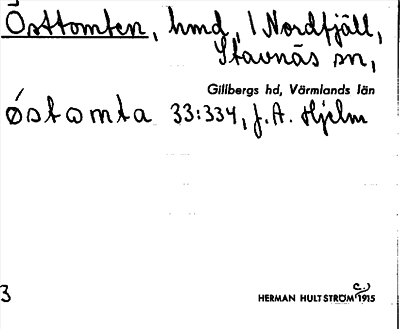 Östtomten, hmd, / Nordfjäll,
Stavnäs sn,
Gillbergs hd, Värmlands län
østɷmta 33:334, J. A. Hjelm
3
HERMAN HULTSTRÖM c.) 1915